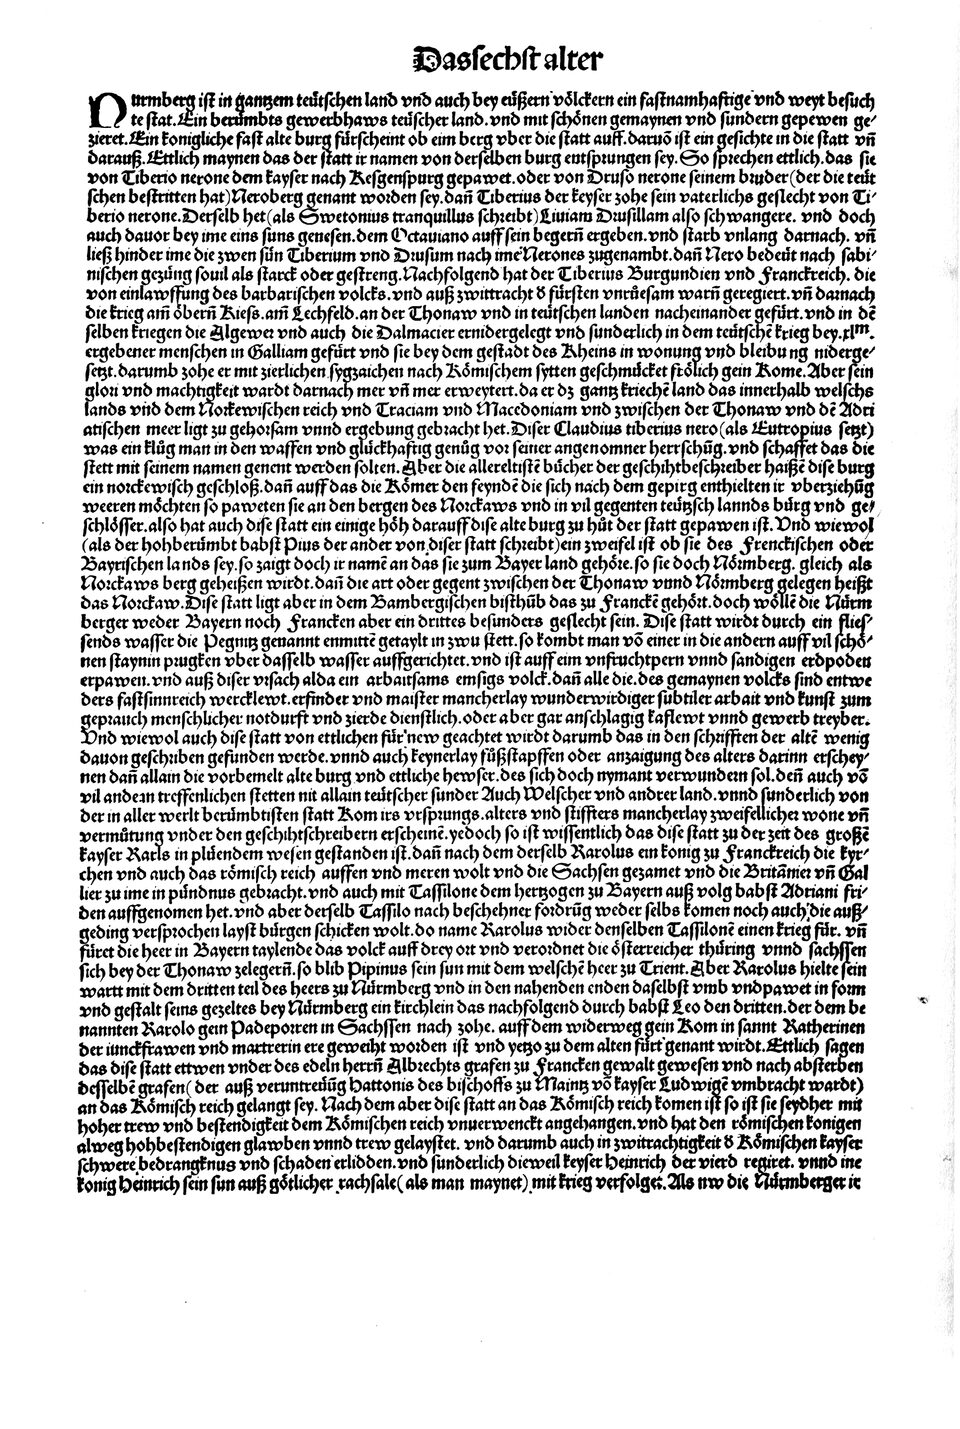 Das sechst alter
Nurmberg ist in gantzem teütschen land vnd auch bey eüßern völckern ein fastnamhaftige vnd weyt besuch
te stat. Ein berümbts gewerbhaws teüscher land. vnd mit schönen gemaynen vnd sundern gepewen ge-
zieret. Ein konigliche fast alte burg fürscheint ob eim berg vber die statt auff. daruõ ist ein gesichte in die statt vñ
darauß. Ettlich maynen das der statt ir namen von derselben burg entsprungen sey. So sprechen ettlich. das sie
von Tiberio nerone dem kayser nach Regenspurg gepawet. oder von Druso nerone seinem bruder (der die teüt
schen bestritten hat) Neroberg genant worden sey. dañ Tiberius der keyser zohe sein vaterlichs geslecht von Ti-
berio nerone. Derselb het (als Swetonius tranquillus schreibt) Liuiam Drusillam also schwangere. vnd doch
auch dauor bey ime eins suns genesen. dem Octauiano auff sein begerñ ergeben. vnd starb vnlang darnach. vñ
ließ hinder ime die zwen sün Tiberium vnd Drusum nach ime Nerones zugenambt. dañ Nero bedeüt nach sabi-
nischen gezüng souil als starck oder gestreng. Nachfolgend hat der Tiberius Burgundien vnd Franckreich. die
von einlawffung des barbarischen volcks. vnd auß zwittracht d fürsten vnrüesam warñ geregiert. vñ darnach
die krieg am̃ öberñ Riess. am̃ Lechfeld. an der Thonaw vnd in teütschen landen nacheinander gefürt. vnd in dẽ
selben kriegen die Algewer vnd auch die Dalmacier ernidergelegt vnd sunderlich in dem teütschẽ krieg bey .xlm.
ergebener menschen in Galliam gefürt vnd sie bey dem gestadt des Rheins in wonung vnd bleibung niderge-
setzt. darumb zohe er mit zierlichen sygzaichen nach Römischem sytten geschmücket frölich gein Rome. Aber sein
glori vnd machtigkeit wardt darnach mer vñ mer erweytert. da er dz gantz kriechẽ land das innerhalb welschs
lands vnd dem Norckewischen reich vnd Traciam vnd Macedoniam vnd zwischen der Thonaw vnd dẽ Adri
atischen meer ligt zu gehorsam vnnd ergebung gebracht het. Diser Claudius tiberius nero (als Eutropius setzt)
was ein klüg man in den waffen vnd glückhaftig genüg vor seiner angenomner herrschüg. vnd schaffet das die
stett mit seinem namen genent werden solten. Aber die allereltistẽ bücher der geschihtbeschreiber haißẽ dise burg
ein norckewisch geschloß. dañ auff das die Römer den feyndẽ die sich nach dem gepirg enthielten ir vberziehüg
weeren möchten so paweten sie an den bergen des Norckaws vnd in vil gegenten teützsch lannds bürg vnd ge-
schlösser. also hat auch dise statt ein einige höh darauff dise alte burg zu hüt der statt gepawen ist. Vnd wiewol
(als der hohberümbt babst Pius der ander von diser statt schreibt) ein zweifel ist ob sie des Frenckischen oder
Bayrischen lands sey. so zaigt doch ir namẽ an das sie zum Bayer land gehöre. so sie doch Nörmberg. gleich als
Norckaws berg geheißen wirdt. dañ die art oder gegent zwischen der Thonaw vnnd Nörmberg gelegen heißt
das Norckaw. Dise statt ligt aber in dem Bambergischen bisthüb das zu Franckẽ gehört. doch wöllẽ die Nürm
berger weder Bayern noch Francken aber ein drittes besunders geslecht sein. Dise statt wirdt durch ein flies-
sends wasser die Pegnitz genannt enmittẽ getaylt in zwu stett. so kombt man võ einer in die andern auff vil schö-
nen staynin prugken vber dasselb wasser auffgerichtet. vnd ist auff eim vnfruchtpern vnnd sandigen erdpoden
erpawen. vnd auß diser vrsach alda ein arbaitsams emsigs volck. dañ alle die. des gemaynen volcks sind entwe
ders fastsinnreich wercklewt. erfinder vnd maister mancherlay wunderwirdiger sübtiler arbait vnd kunst zum
geprauch menschlicher notdurft vnd zierde dienstlich. oder aber gar anschlagig kaflewt vnnd gewerb treyber.
Vnd wiewol auch dise statt von ettlichen für new geachtet wirdt darumb das in den schrifften der altẽ wenig
dauon geschriben gefunden werde. vnnd auch keynerlay füßstapffen oder anzaigung des alters darinn erschey-
nen dañ allain die vorbemelt alte burg vnd ettliche hewser. des sich doch nymant verwundern sol. deñ auch võ
vil andern treffenlichen stetten nit allain teütscher sunder Auch Welscher vnd andrer land. vnnd sunderlich von
der in aller werlt berümbtisten statt Rom irs vrsprungs. alters vnd stiffters mancherlay zweifellicher wone vñ
vermütung vnder den geschihtschreibern erscheinẽ. yedoch so ist wissentlich das dise statt zu der zeit des großẽ
kayser Karls in plüendem wesen gestanden ist. dañ nach dem derselb Karolus ein konig zu Franckreich die kyr-
chen vnd auch das römisch reich auffen vnd meren wolt vnd die Sachsen gezamet vnd die Britãnier vñ Gal
lier zu ime in pündnus gebracht. vnd auch mit Tassilone dem hertzogen zu Bayern auß volg babst Adriani fri-
den auffgenomen het. vnd aber derselb Tassilo nach beschehner fordrüg weder selbs komen noch auch die auß-
geding versprochen layst bürgen schicken wolt. do name Karolus wider denselben Tassilonẽ einen krieg für. vñ
füret die heer in Bayern taylende das volck auff drey ort vnd verordnet die österreicher thüring vnnd sachssen
sich bey der Thonaw zelegerñ. so blib Pipinus sein sun mit dem welschẽ heer zu Trient. Aber Karolus hielte sein
wartt mit dem dritten teil des heers zu Nürmberg vnd in den nahenden enden daselbst vmb vndpawet in form
vnd gestalt seins gezeltes bey Nürmberg ein kirchlein das nachfolgend durch babst Leo den dritten. der dem be
nannten Karolo gein Padeporren in Sachssen nach zohe. auff dem widerweg gein Rom in sannt Katherinen
der iunckfrawen vnd martrerin ere geweiht worden ist vnd yetzo zu dem alten fürt genant wirdt. Ettlich sagen
das dise statt ettwen vnder des edeln herrñ Albrechts grafen zu Francken gewalt gewesen vnd nach absterben
desselbẽ grafen (der auß veruntreüüg Hattonis des bischoffs zu Maintz võ kayser Ludwigẽ vmbracht wardt)
an das Römisch reich gelangt sey. Nach dem aber dise statt an das Römisch reich komen ist so ist sie seydher mit
hoher trew vnd bestendigkeit dem Römischen reich vnuerwenckt angehangen. vnd hat den römischen konigen
alweg hohbestendigen glawben vnnd trew gelaystet. vnd darumb auch in zwitrachtigkeit d Römischen kayser
schwere bedrangknus vnd schaden erlidden. vnd sunderlich dieweil keyser Heinrich der vierd regiret. vnnd ine
konig Heinrich sein sun auß götlicher rachsale (als man maynet) mit krieg verfolget. Als nw die Nürmberger ir